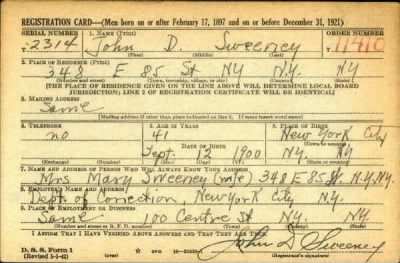 REGISTRATION CARD—(Men born on or after February 17, 1897 and on or before December 31, 1921)
SERIAL NUMBER 1. NAME (Print) ORDER NUMBER
2314 John D. Sweeney 11410
(First) (Middle) (Last)
2. PLACE OF RESIDENCE (Print)
348 E 85 St NY N.Y. NY
(Number and street) (Town, township, village, or city) (County) (State)
[THE PLACE OF RESIDENCE GIVEN ON THE LINE ABOVE WILL DETERMINE LOCAL BOARD
JURISDICTION; LINE 2 OF REGISTRATION CERTIFICATE WILL BE IDENTICAL]
3. MAILING ADDRESS
Same
[Mailing address if other than place indicated on line 2. If same insert word same]
4. TELEPHONE 5. AGE IN YEARS 6. PLACE OF BIRTH
no 41 New York City
DATE OF BIRTH (Town or county)
Sept. 12 1900 N.Y. NY
(Exchange) (Number) (Mo.) (Day) (Yr.) (State or country)
7. NAME AND ADDRESS OF PERSON WHO WILL ALWAYS KNOW YOUR ADDRESS
Mrs Mary Sweeney (wife) 348 E 85 St. N.Y. N.Y.
8. EMPLOYER'S NAME AND ADDRESS
Dept. of Correction, New York City N.Y.
9. PLACE OF EMPLOYMENT OR BUSINESS
Same 100 Centre St NY N.Y.
(Number and street or R. F. D. number) (Town) (County) (State)
I AFFIRM THAT I HAVE VERIFIED ABOVE ANSWERS AND THAT THEY ARE TRUE.
D. S. S. Form 1
(Revised 1-1-42) (over) John D Sweeney
(Registrant's signature)